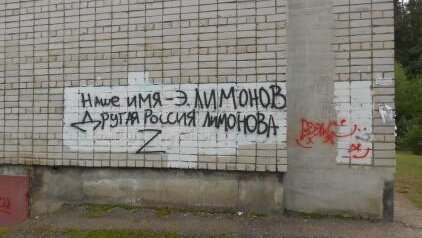 Наше имя-Э.Лимонов
Другая Россия Лимонова
Z